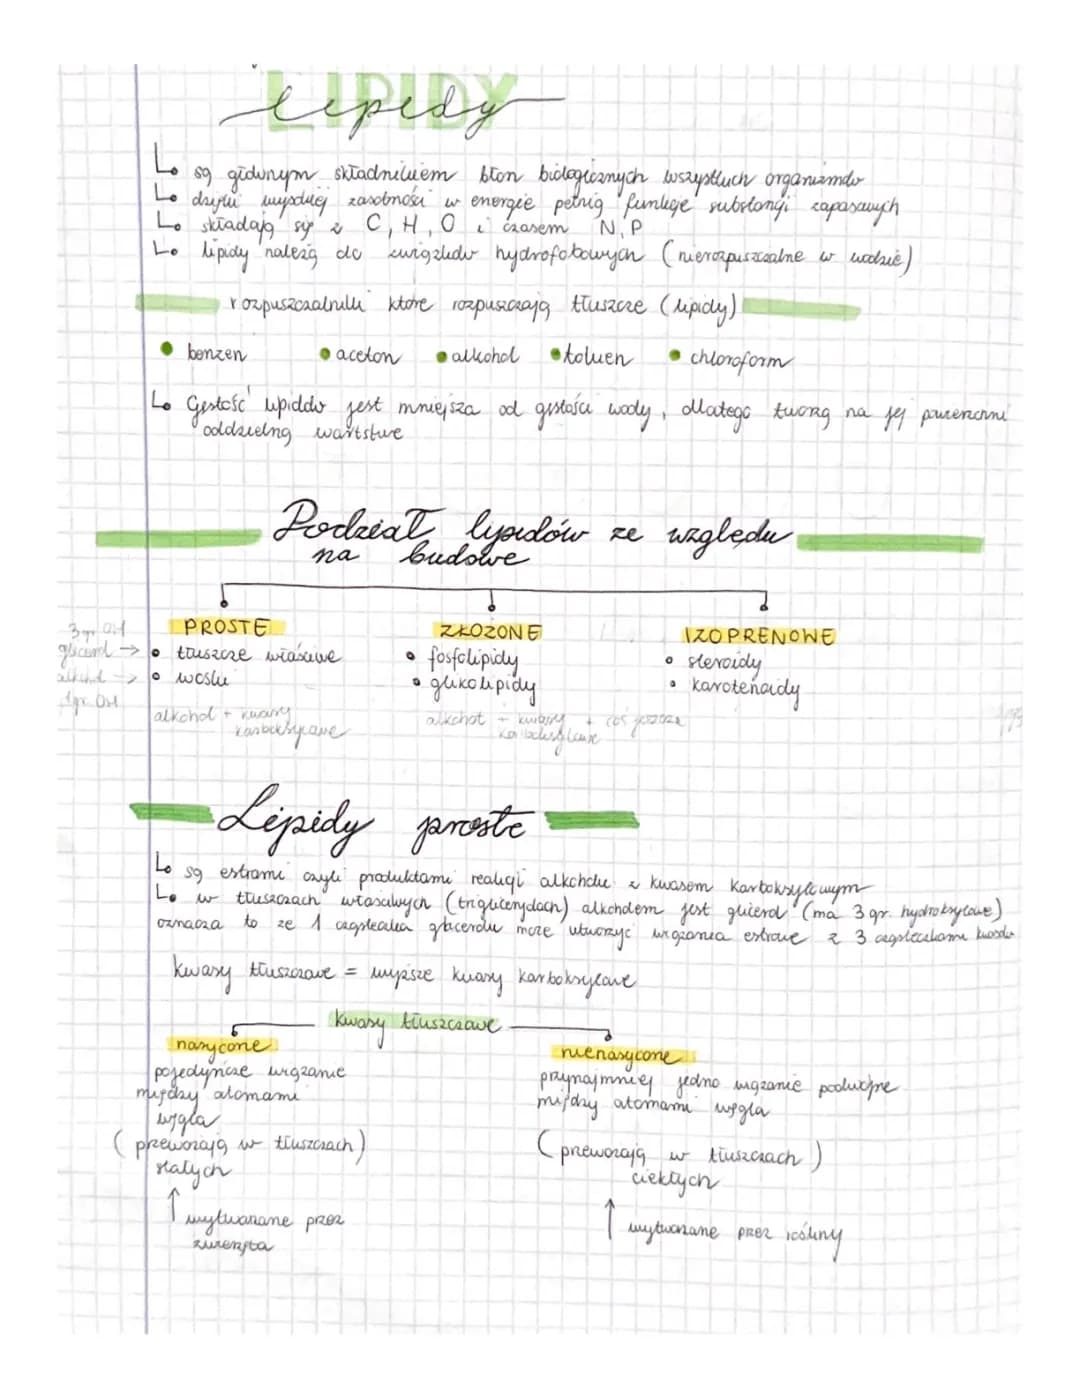 LIPIDY
lipidy
są głównym składnikiem błon biologicznych wszystkich organizmów
dzięki wysokiej zasobności w energię pełnią funkcję substancji zapasowych
składają się z C, H, O i czasem N, P
lipidy należą do związków hydrofobowych (nierozpuszczalne w wodzie)
rozpuszczalniki które rozpuszczają tłuszcze (lipidy)
• benzen • aceton • alkohol • toluen • chloroform
Gęstość lipidów jest mniejsza od gęstości wody, dlatego tworzą na jej powierzchni
oddzielną wartstwe
Podział lipidów ze względu
na budowe
PROSTE ZŁOŻONE IZOPRENOWE
3gr OH
glicerol → • tłuszcze właściwe • fosfolipidy • steroidy
alkohol → • woski • glikolipidy • karotenoidy
1gr. OH
alkohol + kwasy alkohol + kwasy + coś jeszcze
karboksylowe karboksylowe
Lipidy proste
są estrami czyli produktami reakcji alkoholu z kwasem karboksylowym
w tłuszczach właściwych (triglicerydach) alkoholem jest glicerol (ma 3 gr. hydroksylowe)
oznacza to ze 1 cząsteczka glicerolu może utworzyć wiązania estrowe z 3 cząsteczkami kwasów
kwasy tłuszczowe = wyższe kwasy karboksylowe
kwasy tłuszczowe
nasycone nienasycone
pojedyńcze wiązanie przynajmniej jedno wiązanie podwójne
między atomami między atomami węgla
węgla
(przeważają w tłuszczach) (przeważają w tłuszczach)
stałych ciekłych
↑ wytwarzane przez ↑ wytwarzane przez rośliny
zwierzęta